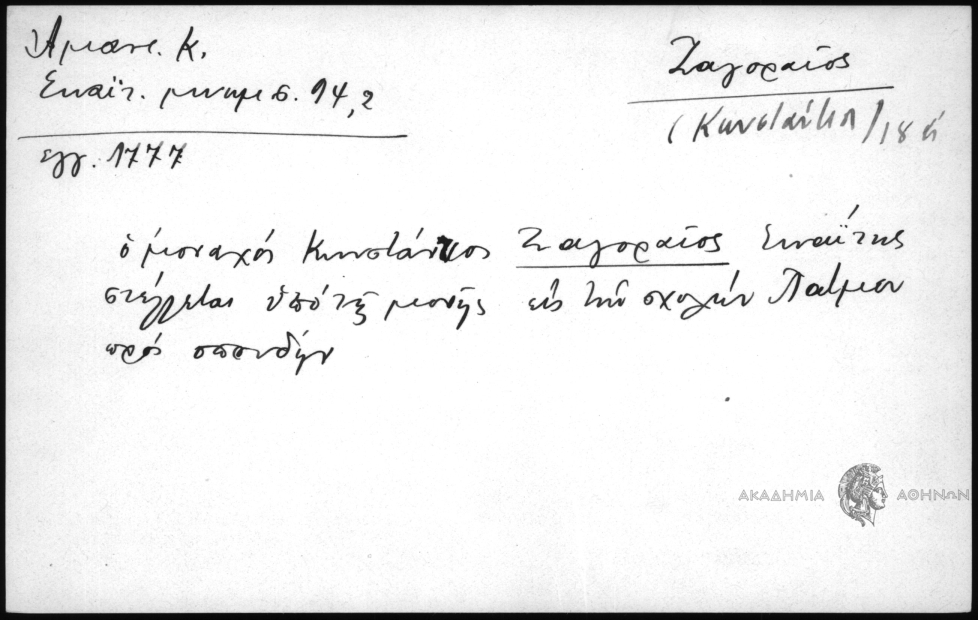 Ἀμαντ. Κ.
Σιναϊτ. μνημ. σ. 94,2
ἔγγ. 1777
Ζαγοραῖος
(Κωνστάντιος) 18
ὁ μοναχός Κωνστάντιος Ζαγοραῖος Σιναΐτης
στέλλεται ὑπό τῆς μονῆς εἰς τήν σχολήν Πάτμου
πρός σπουδήν
ΑΚΑΔΗΜΙΑ ΑΘΗΝΩΝ